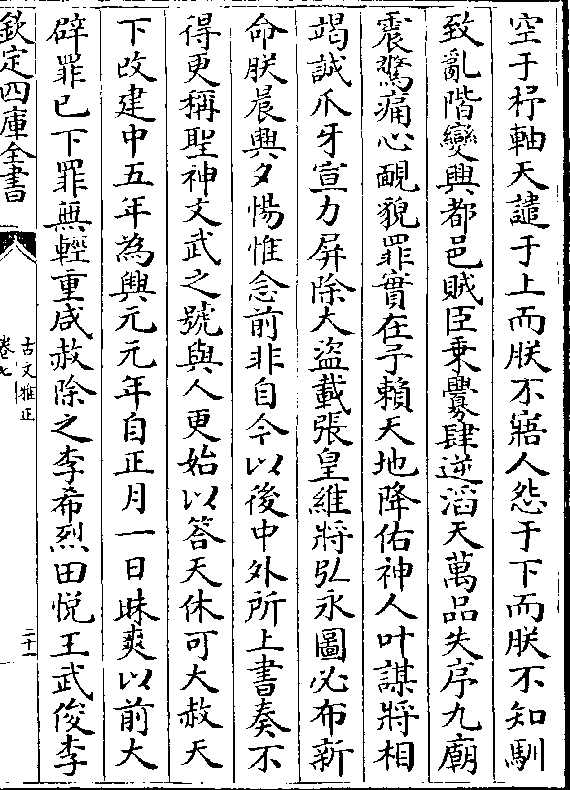 空于杼軸天譴于上而朕不寤人怨于下而朕不知馴
致亂階變興都邑賊臣乗釁肆逆滔天萬品失序九廟
震驚痛心靦貌罪實在予賴天地降佑神人叶謀將相
竭誠爪牙宣力屏除大盜載張皇維將弘永圖必布新
命朕晨興夕惕惟念前非自今以後中外所上書奏不
得更稱聖神文武之號與人更始以答天休可大赦天
下改建中五年為興元元年自正月一日昧爽以前大
辟罪已下罪無輕重咸赦除之李希烈田悅王武俊李
欽定四庫全書
古文雅正
卷七
二十一